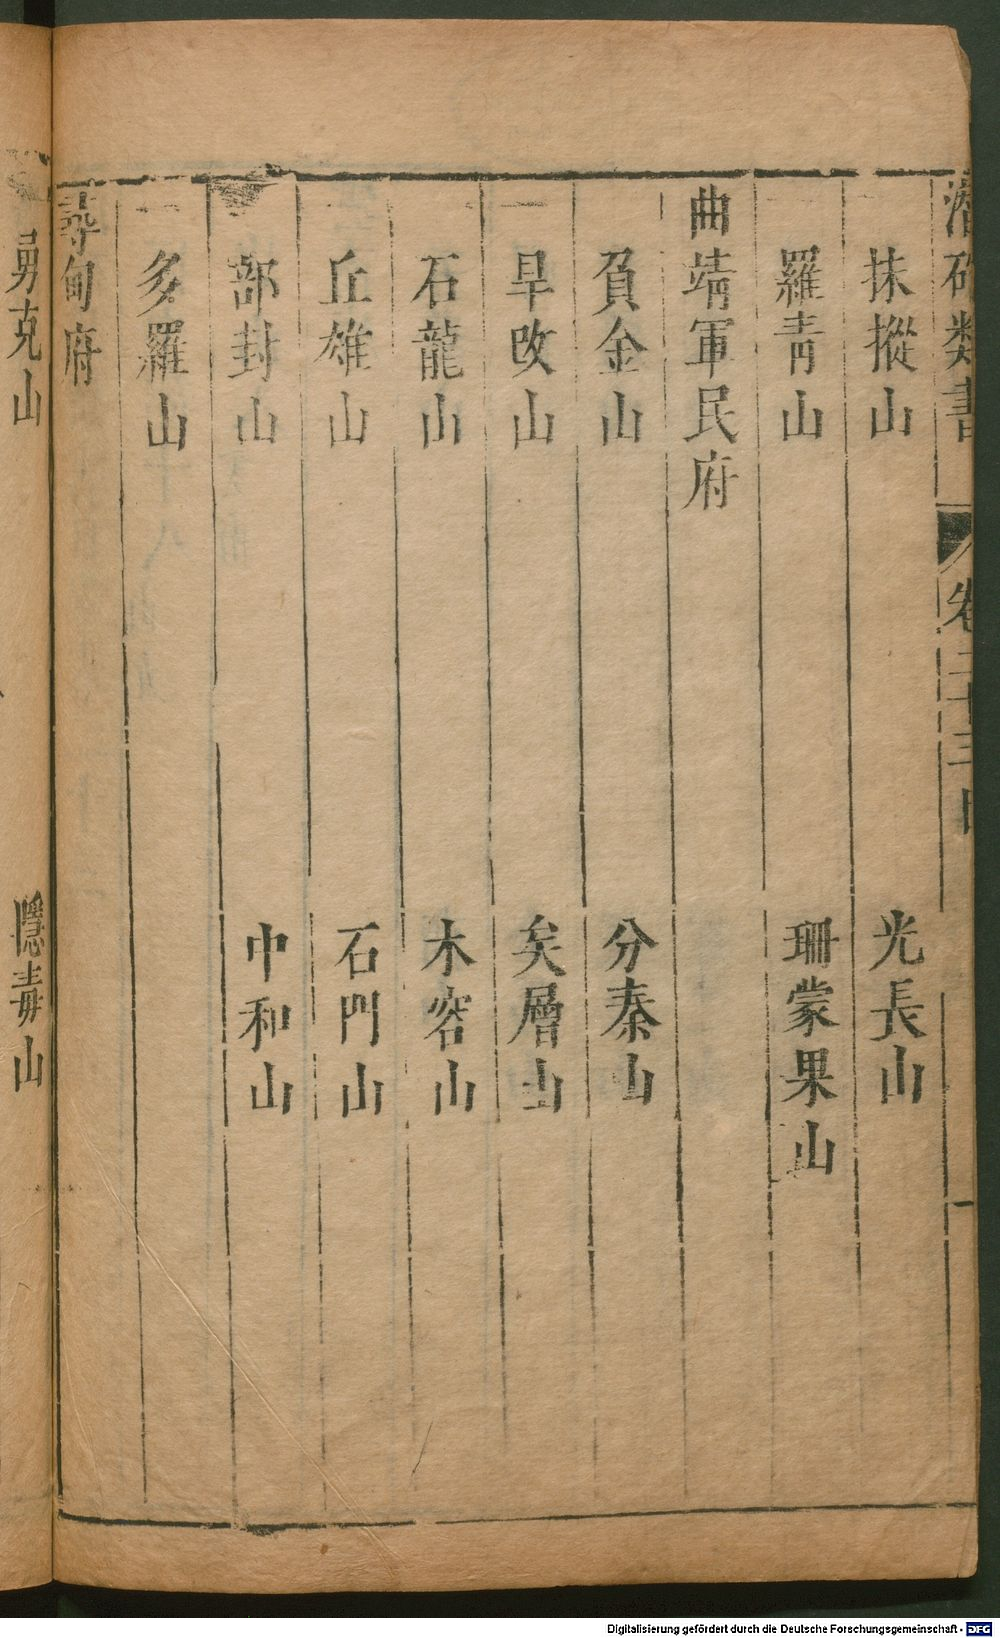 潛確類書 卷二十三
抹摐山 光長山
羅青山 珊蒙果山
曲靖軍民府
負金山 分秦山
旱攺山 矣層山
石龍山 木容山
丘雄山 石門山
部封山 中和山
多羅山
尋甸府
勇克山 隱毒山
Digitalisierung gefördert durch die Deutsche Forschungsgemeinschaft - DFG